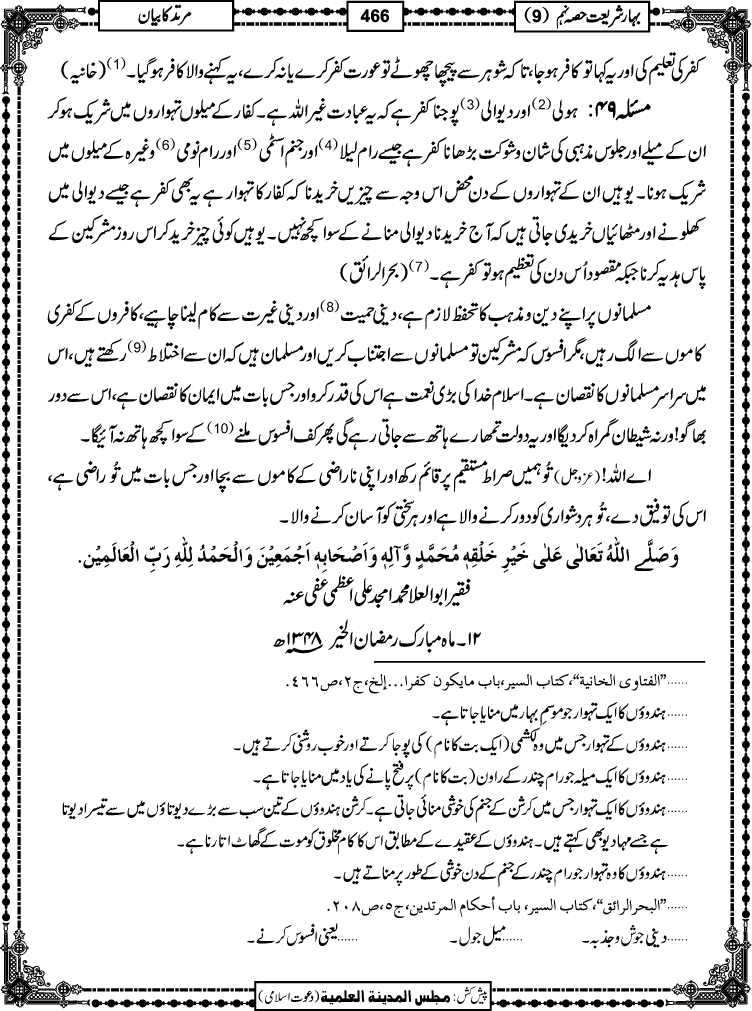 بہارِشریعت حصہ نہم (9)
466
مرتد کا بیان
کفر کی تعلیم کی اور یہ کہا تو کافر ہو جا، تا کہ شوہر سے پیچھا چھوٹے تو عورت کفر کرے یا نہ کرے، یہ کہنے والا کافر ہو گیا۔(1) (خانیہ)
مسئلہ ۴۹: ہولی(2) اور دیوالی(3) پوجنا کفر ہے کہ یہ عبادت غیر اللہ ہے۔ کفار کے میلوں تہواروں میں شریک ہو کر
ان کے میلے اور جلوس مذہبی کی شان و شوکت بڑھانا کفر ہے جیسے رام لیلا(4) اور جنم اسٹمی(5) اور رام نومی(6) وغیرہ کے میلوں میں
شریک ہونا۔ یو ہیں ان کے تہواروں کے دن محض اس وجہ سے چیزیں خریدنا کہ کفار کا تہوار ہے یہ بھی کفر ہے جیسے دیوالی میں
کھلونے اور مٹھائیاں خریدی جاتی ہیں کہ آج خریدنا دیوالی منانے کے سوا کچھ نہیں۔ یو ہیں کوئی چیز خرید کر اس روز مشرکین کے
پاس ہدیہ کرنا جبکہ مقصود اُس دن کی تعظیم ہو تو کفر ہے۔(7) (بحرالرائق)
مسلمانوں پر اپنے دین و مذہب کا تحفظ لازم ہے، دینی حمیت(8) اور دینی غیرت سے کام لینا چاہیے، کافروں کے کفری
کاموں سے الگ رہیں، مگر افسوس کہ مشرکین تو مسلمانوں سے اجتناب کریں اور مسلمان ہیں کہ ان سے اختلاط(9) رکھتے ہیں، اس
میں سراسر مسلمانوں کا نقصان ہے۔ اسلام خدا کی بڑی نعمت ہے اس کی قدر کرو اور جس بات میں ایمان کا نقصان ہے، اس سے دور
بھاگو! ورنہ شیطان گمراہ کر دیگا اور یہ دولت تمھارے ہاتھ سے جاتی رہے گی پھر کف افسوس ملنے(10) کے سوا کچھ ہاتھ نہ آئیگا۔
اے اللہ! (عزوجل) تُو ہمیں صراط مستقیم پر قائم رکھ اور اپنی ناراضی کے کاموں سے بچا اور جس بات میں تُو راضی ہے،
اس کی توفیق دے، تُو ہر دشواری کو دور کرنے والا ہے اور ہر سختی کو آسان کرنے والا۔
وَصَلَّے اللّٰہُ تَعَالٰی عَلٰی خَیْرِ خَلْقِہٖ مُحَمَّدٍ وَّآلِہٖ وَاَصْحَابِہٖ اَجْمَعِیْنَ وَالْحَمْدُ لِلّٰہِ رَبِّ الْعَالَمِیْن.
فقیر ابوالعلا محمد امجد علی اعظمی عفی عنہ
۱۲۔ ماہ مبارک رمضان الخیر ۱۳۴۸ھ
......"الفتاوی الخانیۃ"، کتاب السیر، باب مایکون کفرا...إلخ، ج۲، ص۴۶۶.
......ہندوؤں کا ایک تہوار جو موسمِ بہار میں منایا جاتا ہے۔
......ہندوؤں کے تہوار جس میں وہ لکشمی (ایک بت کا نام) کی پوجا کرتے اور خوب روشنی کرتے ہیں۔
......ہندوؤں کا ایک میلہ جو رام چندر کے راون (بت کا نام) پر فتح پانے کی یاد میں منایا جاتا ہے۔
......ہندوؤں کا ایک تہوار جس میں کرشن کے جنم کی خوشی منائی جاتی ہے۔ کرشن ہندوؤں کے تین سب سے بڑے دیوتاؤں میں سے تیسرا دیوتا
ہے جسے مہادیو بھی کہتے ہیں۔ ہندوؤں کے عقیدے کے مطابق اس کا کام مخلوق کو موت کے گھاٹ اتارنا ہے۔
......ہندوؤں کا وہ تہوار جو رام چندر کے جنم کے دن خوشی کے طور پر مناتے ہیں۔
......"البحرالرائق"، کتاب السیر، باب أحکام المرتدین، ج۵، ص۲۰۸.
......دینی جوش و جذبہ۔ ......میل جول۔ ......یعنی افسوس کرنے۔
پیش کش: مجلس المدینۃ العلمیۃ (دعوت اسلامی)